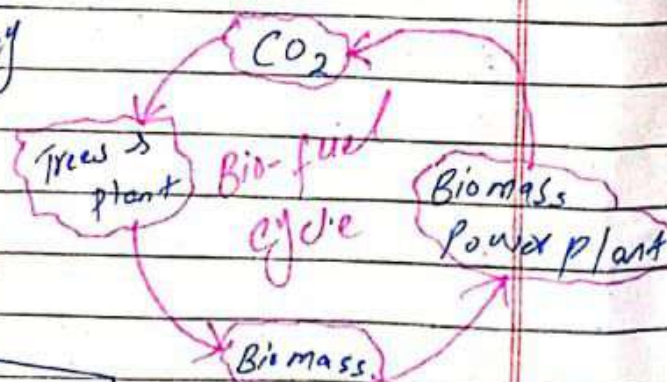 CO2
Trees &
plant
Bio-fuel
cycle
Biomass
Power plant
Biomass.